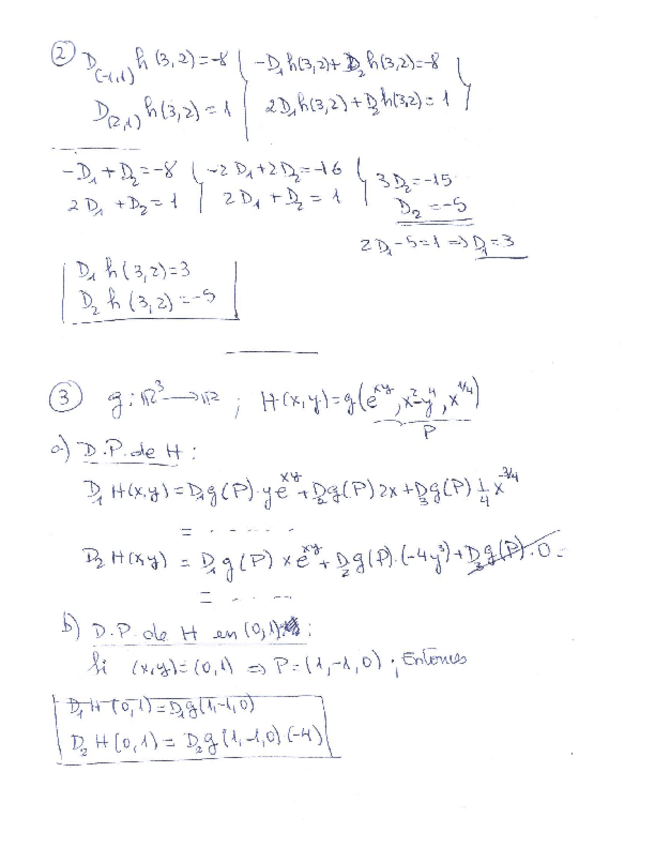 ② D₍₋₁,₁₎ h(3,2) = -8 | -D₁h(3,2) + D₂h(3,2) = -8
D₍₂,₁₎ h(3,2) = 1 | 2D₁h(3,2) + D₂h(3,2) = 1
-D₁ + D₂ = -8 | -2D₁ + 2D₂ = -16 | 3D₂ = -15
2D₁ + D₂ = 1 | 2D₁ + D₂ = 1 | D₂ = -5
2D₁ - 5 = 1 => D₁ = 3
D₁h(3,2) = 3
D₂h(3,2) = -5
③ g: ℝ³ → ℝ ; H(x,y) = g(e^{xy}, x² - y⁴, x^{1/4})
P
a) D.P. de H :
D₁H(x,y) = D₁g(P)·ye^{xy} + D₂g(P)2x + D₃g(P) 1/4 x^{3/4}
= .....
D₂H(x,y) = D₁g(P) xe^{xy} + D₂g(P)·(-4y³) + D₃g(P)·0 =
= ....
b) D.P. de H en (0,1) :
Si (x,y) = (0,1) => P = (1,-1,0) ; Entonces
D₁H(0,1) = D₁g(1,-1,0)
D₂H(0,1) = D₂g(1,-1,0)(-4)